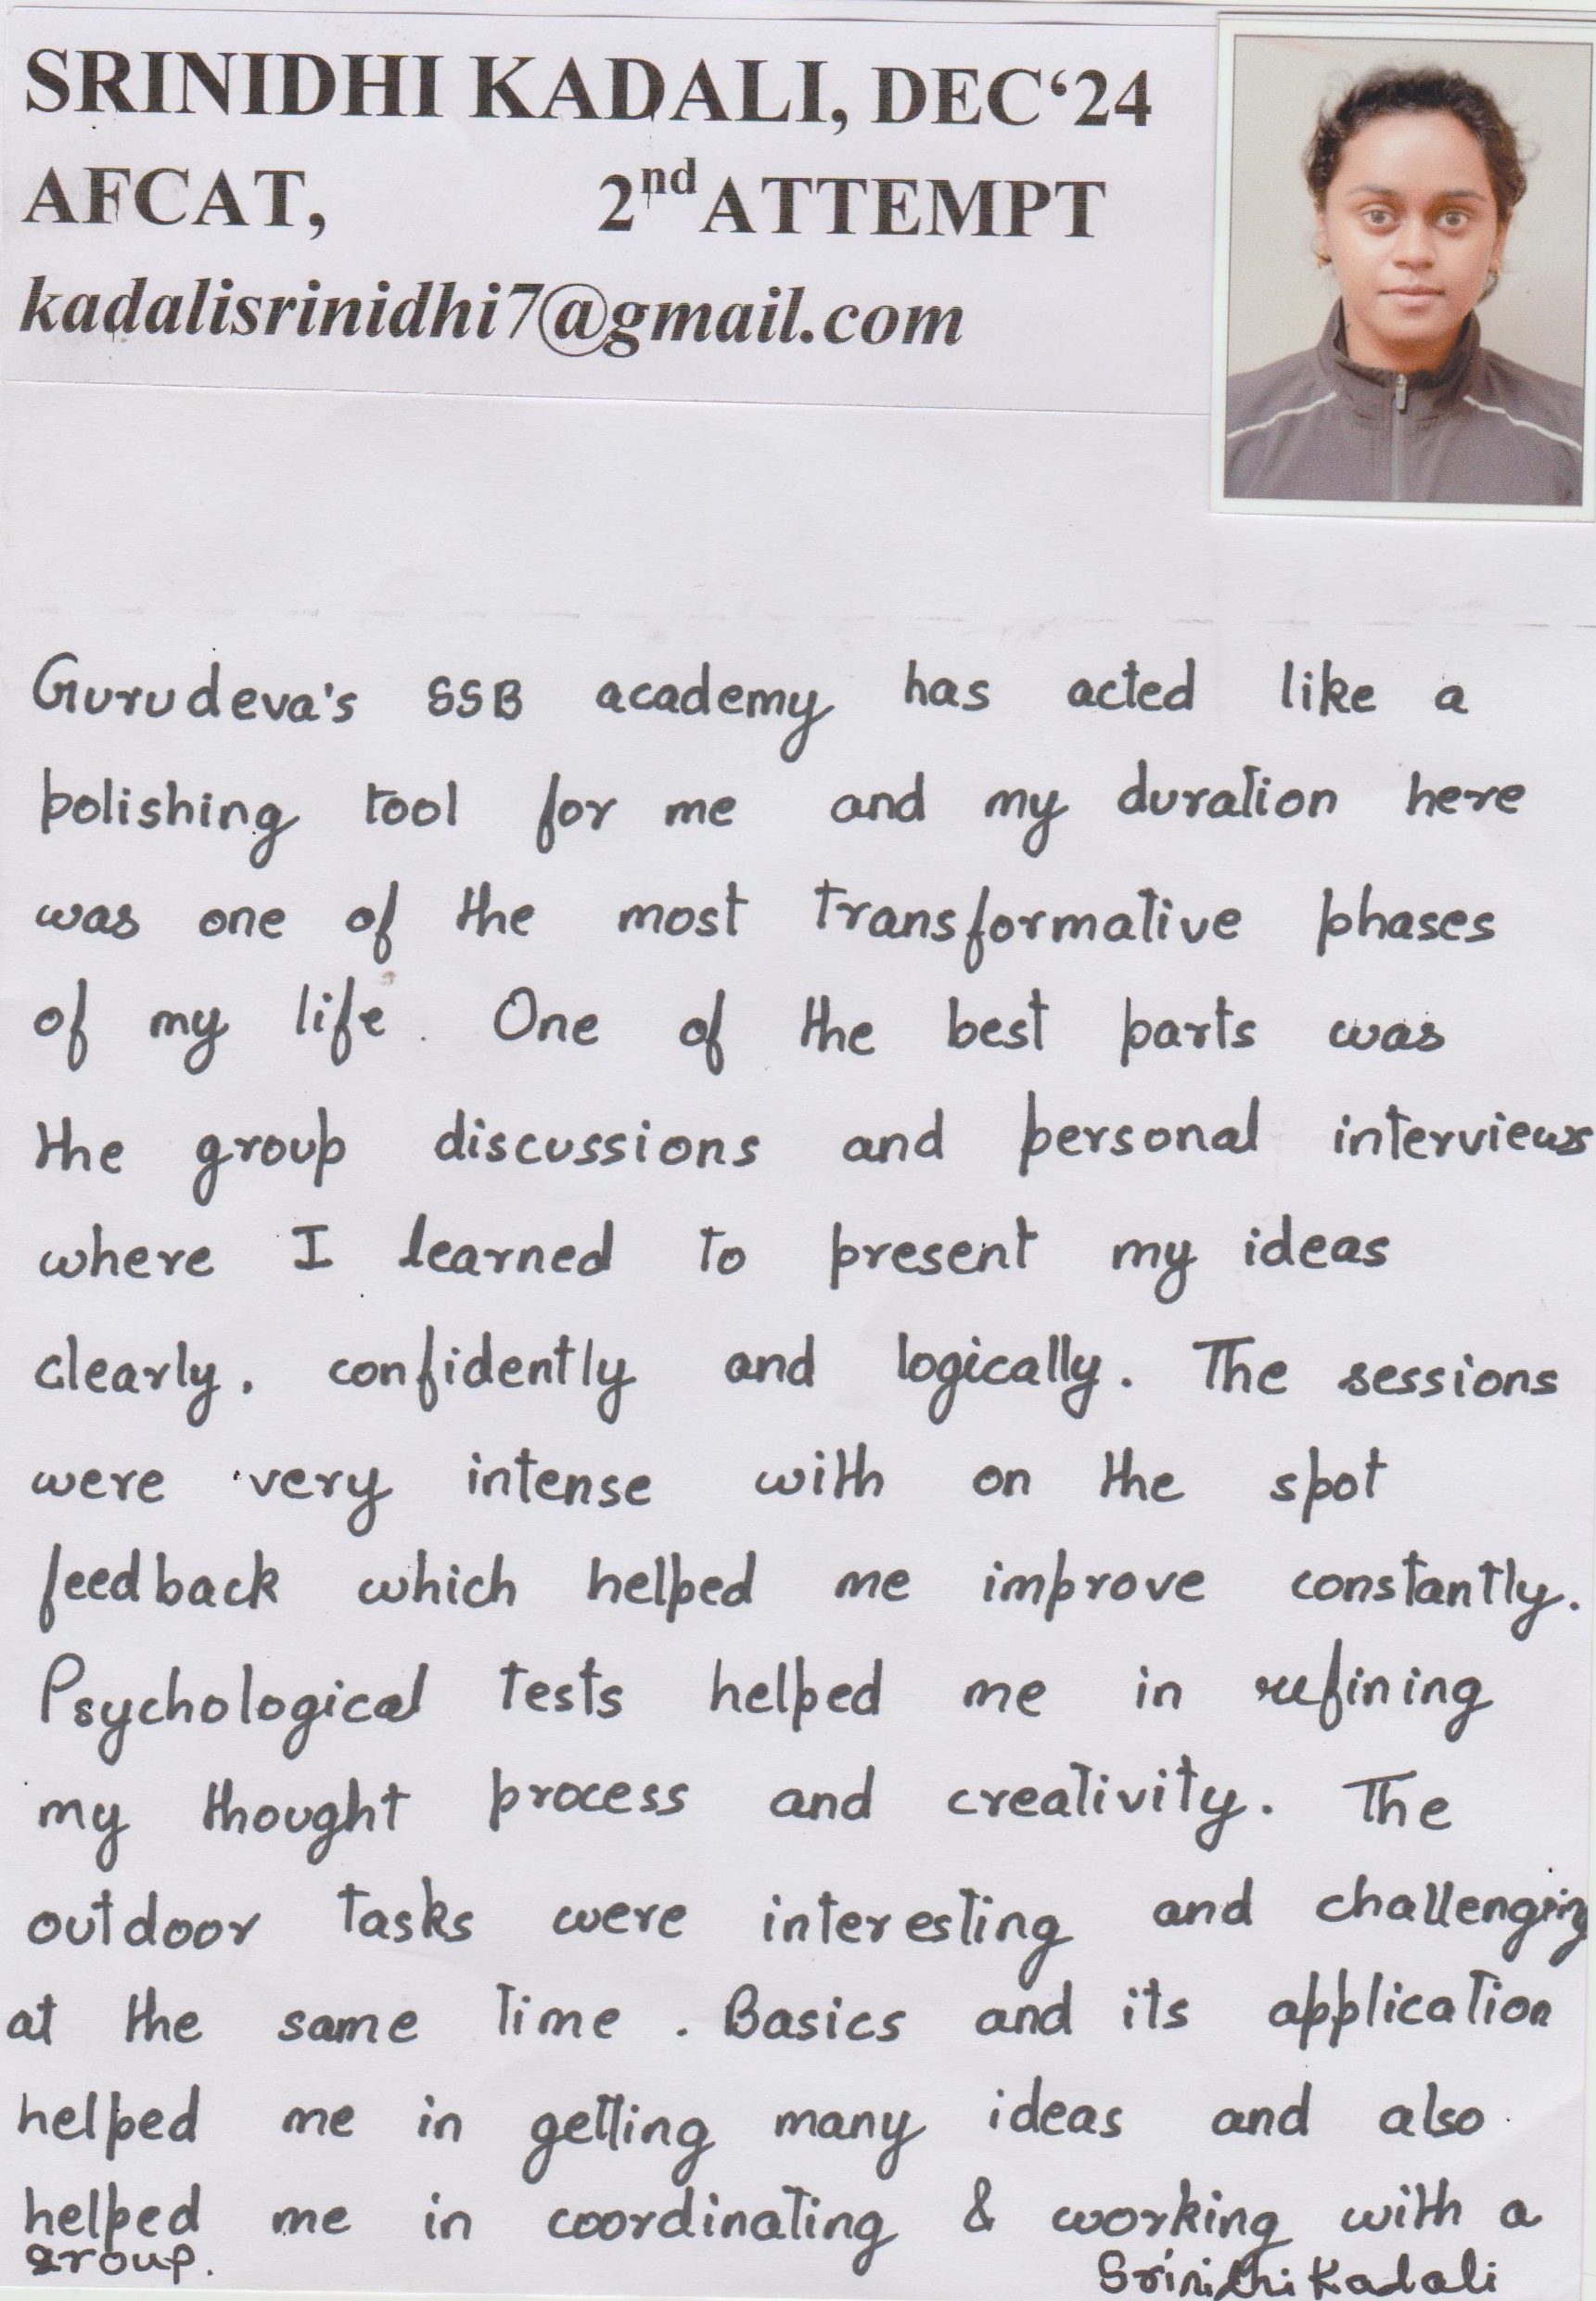 SRINIDHI KADALI, DEC‘24
AFCAT, 2nd ATTEMPT
kadalisrinidhi7@gmail.com
Gurudeva's SSB academy has acted like a
polishing tool for me and my duration here
was one of the most transformative phases
of my life. One of the best parts was
the group discussions and personal interviews
where I learned to present my ideas
clearly, confidently and logically. The sessions
were very intense with on the spot
feedback which helped me improve constantly.
Psychological tests helped me in refining
my thought process and creativity. The
outdoor tasks were interesting and challenging
at the same time. Basics and its application
helped me in getting many ideas and also
helped me in coordinating & working with a
group.
Srinidhi Kadali